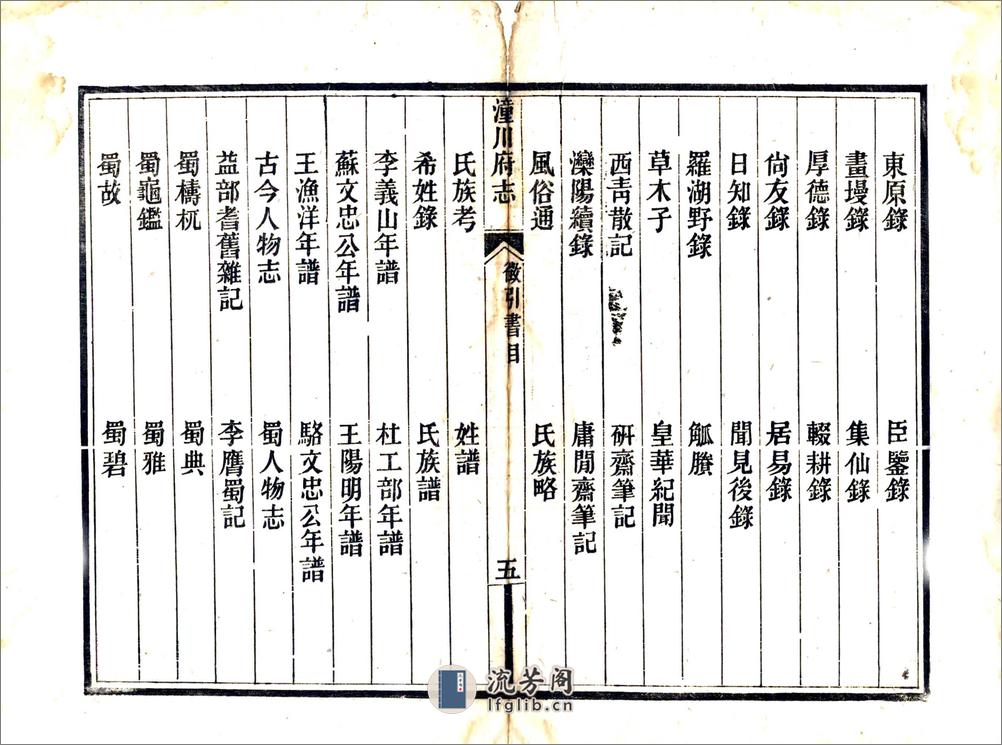 東原錄 臣鑒錄
畫墁錄 集仙錄
厚德錄 輟耕錄
尙友錄 居易錄
日知錄 聞見後錄
羅湖野錄 觚賸
草木子 皇華紀聞
西靑散記 硏齋筆記
灤陽續錄 庸閒齋筆記
風俗通 氏族略
潼川府志 徵引書目 五
氏族考 姓譜
希姓錄 氏族譜
李義山年譜 杜工部年譜
蘇文忠公年譜 王陽明年譜
王漁洋年譜 駱文忠公年譜
古今人物志 蜀人物志
益部耆舊雜記 李膺蜀記
蜀檮杌 蜀典
蜀龜鑑 蜀雅
蜀故 蜀碧
流芳阁
lfglib.cn